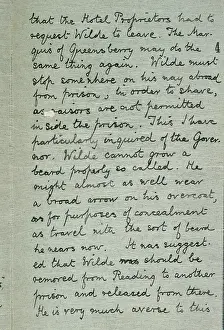 that the Hotel Proprietors had to
request Wilde to leave. The Mar-
quis of Queensberry may do the
same thing again. Wilde must
stop somewhere on his way abroad
from prison, in order to shave,
as raisors are not permitted
in side the prison. This I have
particularly inquired of the Gover-
nor. Wilde cannot grow a
beard properly so called. He
might almost as well wear
a broad arrow on his overcoat,
as for purposes of concealment
as travel with the sort of beard
he wears now. It was suggest-
ed that Wilde should be
removed from Reading to another
prison and released from there.
He is very much averse to this